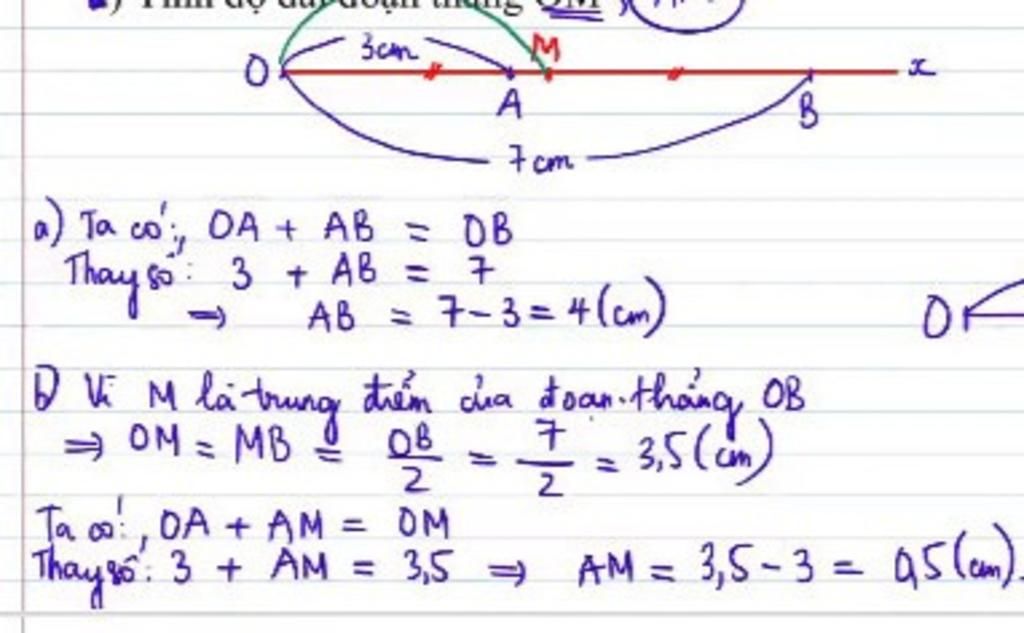 Tính độ dài đoạn thẳng OM,
3cm
M
O
x
A
B
7cm
a) Ta có:, OA + AB = OB
Thay số: 3 + AB = 7
⇒ AB = 7 - 3 = 4 (cm)
O
b) Vì M là trung điểm của đoạn thẳng OB
⇒ OM = MB = OB/2 = 7/2 = 3,5 (cm)
Ta có:, OA + AM = OM
Thay số: 3 + AM = 3,5 ⇒ AM = 3,5 - 3 = 0,5 (cm).